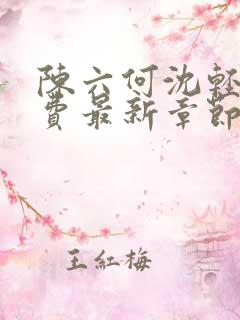 陳六何沈輕
費最新章節
王紅梅